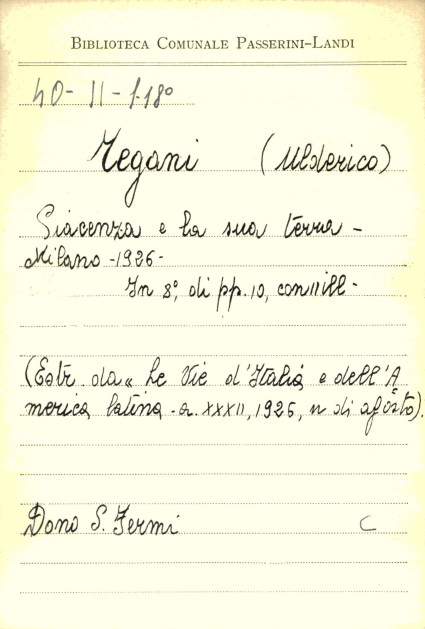 BIBLIOTECA COMUNALE PASSERINI-LANDI
40-II-f.18°
Tegani (Ulderico)
Piacenza e la sua terra -
Milano -1926-
In 8°, di pp.10, con 11 ill -
(Estr. da « Le Vie d'Italia e dell'A
merica latina - a. XXXII, 1926, n di agosto).
Dono S. Fermi
C